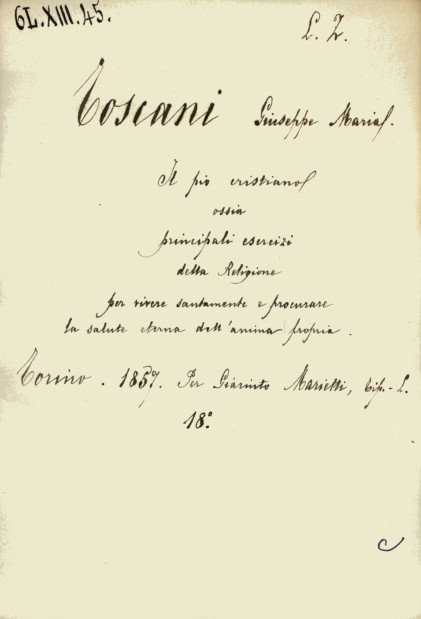 6L.XIII.45.
L. Z.
Toscani Giuseppe Maria.
Il pio cristiano
ossia
principali esercizi
della Religione
per vivere santamente e procurare
la salute eterna dell'anima propria.
Torino. 1857. Per Giacinto Marietti, Tip-L.
18.°
c